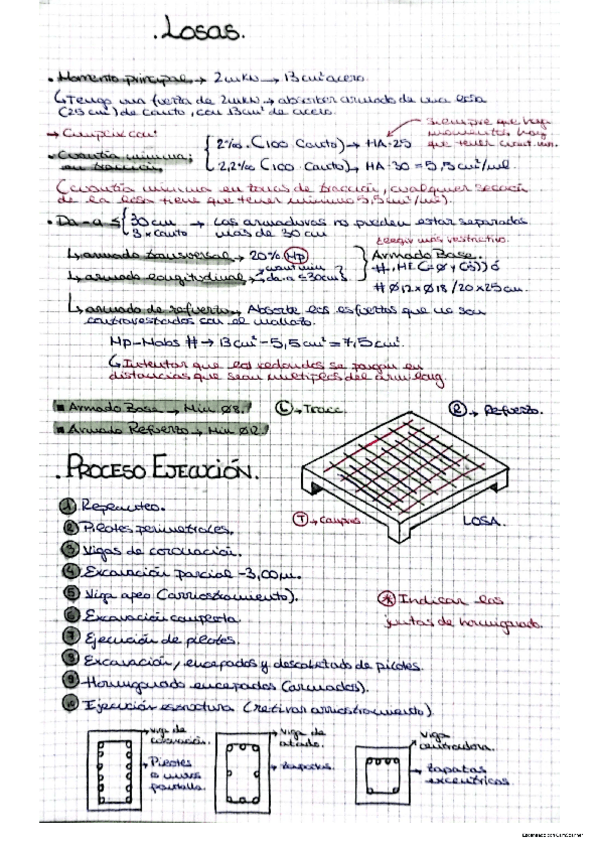 . Losas.
• Momento principal → 2mkN → 13cm² acero.
↳ Tengo una fuerza de 2mkN → absorber armado de una losa
(25 cm) de canto, con 13cm² de acero.
→ Cumplir con:
• Cuantía mínima;
en tracción,
2‰ · (100 · Canto) → HA-25
2,2‰ · (100 · Canto) → HA-30 = 5,5cm²/ml.
Siempre que haya
momentos hay
que tener cuant. min.
(Cuantía mínima en zonas de tracción, cualquier sección
de la losa tiene que tener mínimo 5,5cm²/ml).
• Da-a ≤ { 30 cm → Las armaduras no pueden estar separadas
3 x canto más de 30 cm
Elegir más restrictivo.
↳ armado transversal → 20% Mp
↳ armado longitudinal → cuant min
da-a ≤ 30cm
Armado Base.
#Ø12 x Ø18 /20 x 25 cm.
↳ armado de refuerzo → Absorbe los esfuerzos que no son
contrarrestados con el mallazo.
Mp-Mabs # → 13cm² - 5,5cm² = 7,5cm².
↳ Intentar que los redondos se pongan en
distancias que sean múltiplos del arm long.
■ Armado Base → Min Ø8.
■ Armado Refuerzo → Min Ø12
L → Tracc.
R → Refuerzo.
T → Compre.
LOSA.
. PROCESO EJECUCIÓN.
1 Replanteo.
2 Pilotes perimetrales.
3 Vigas de coronación.
4 Excavación parcial -3,00m.
5 Viga apeo (arriostramiento).
6 Excavación completa.
7 Ejecución de pilotes.
8 Excavación, encepados y descabezado de pilotes.
9 Hormigonado encepados (armados).
10 Ejecución estructura (retirar arriostramiento).
* Indicar las
juntas de hormigonado.
viga de
coronación.
Pilotes
o muros
pantalla.
Viga de
atado.
zapatas.
Viga
centradora.
zapatas
excéntricas.